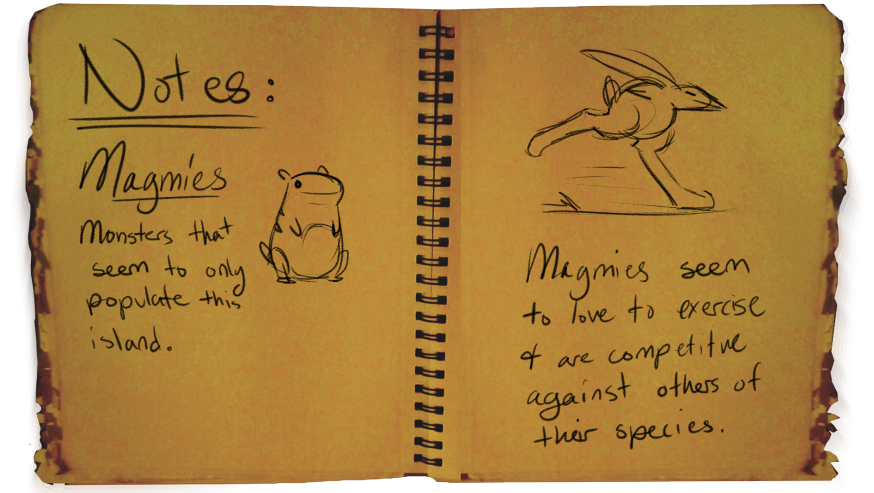 Notes:
Magmies
Monsters that
seem to only
populate this
island.
Magmies seem
to love to exercise
& are competitve
against others of
their species.